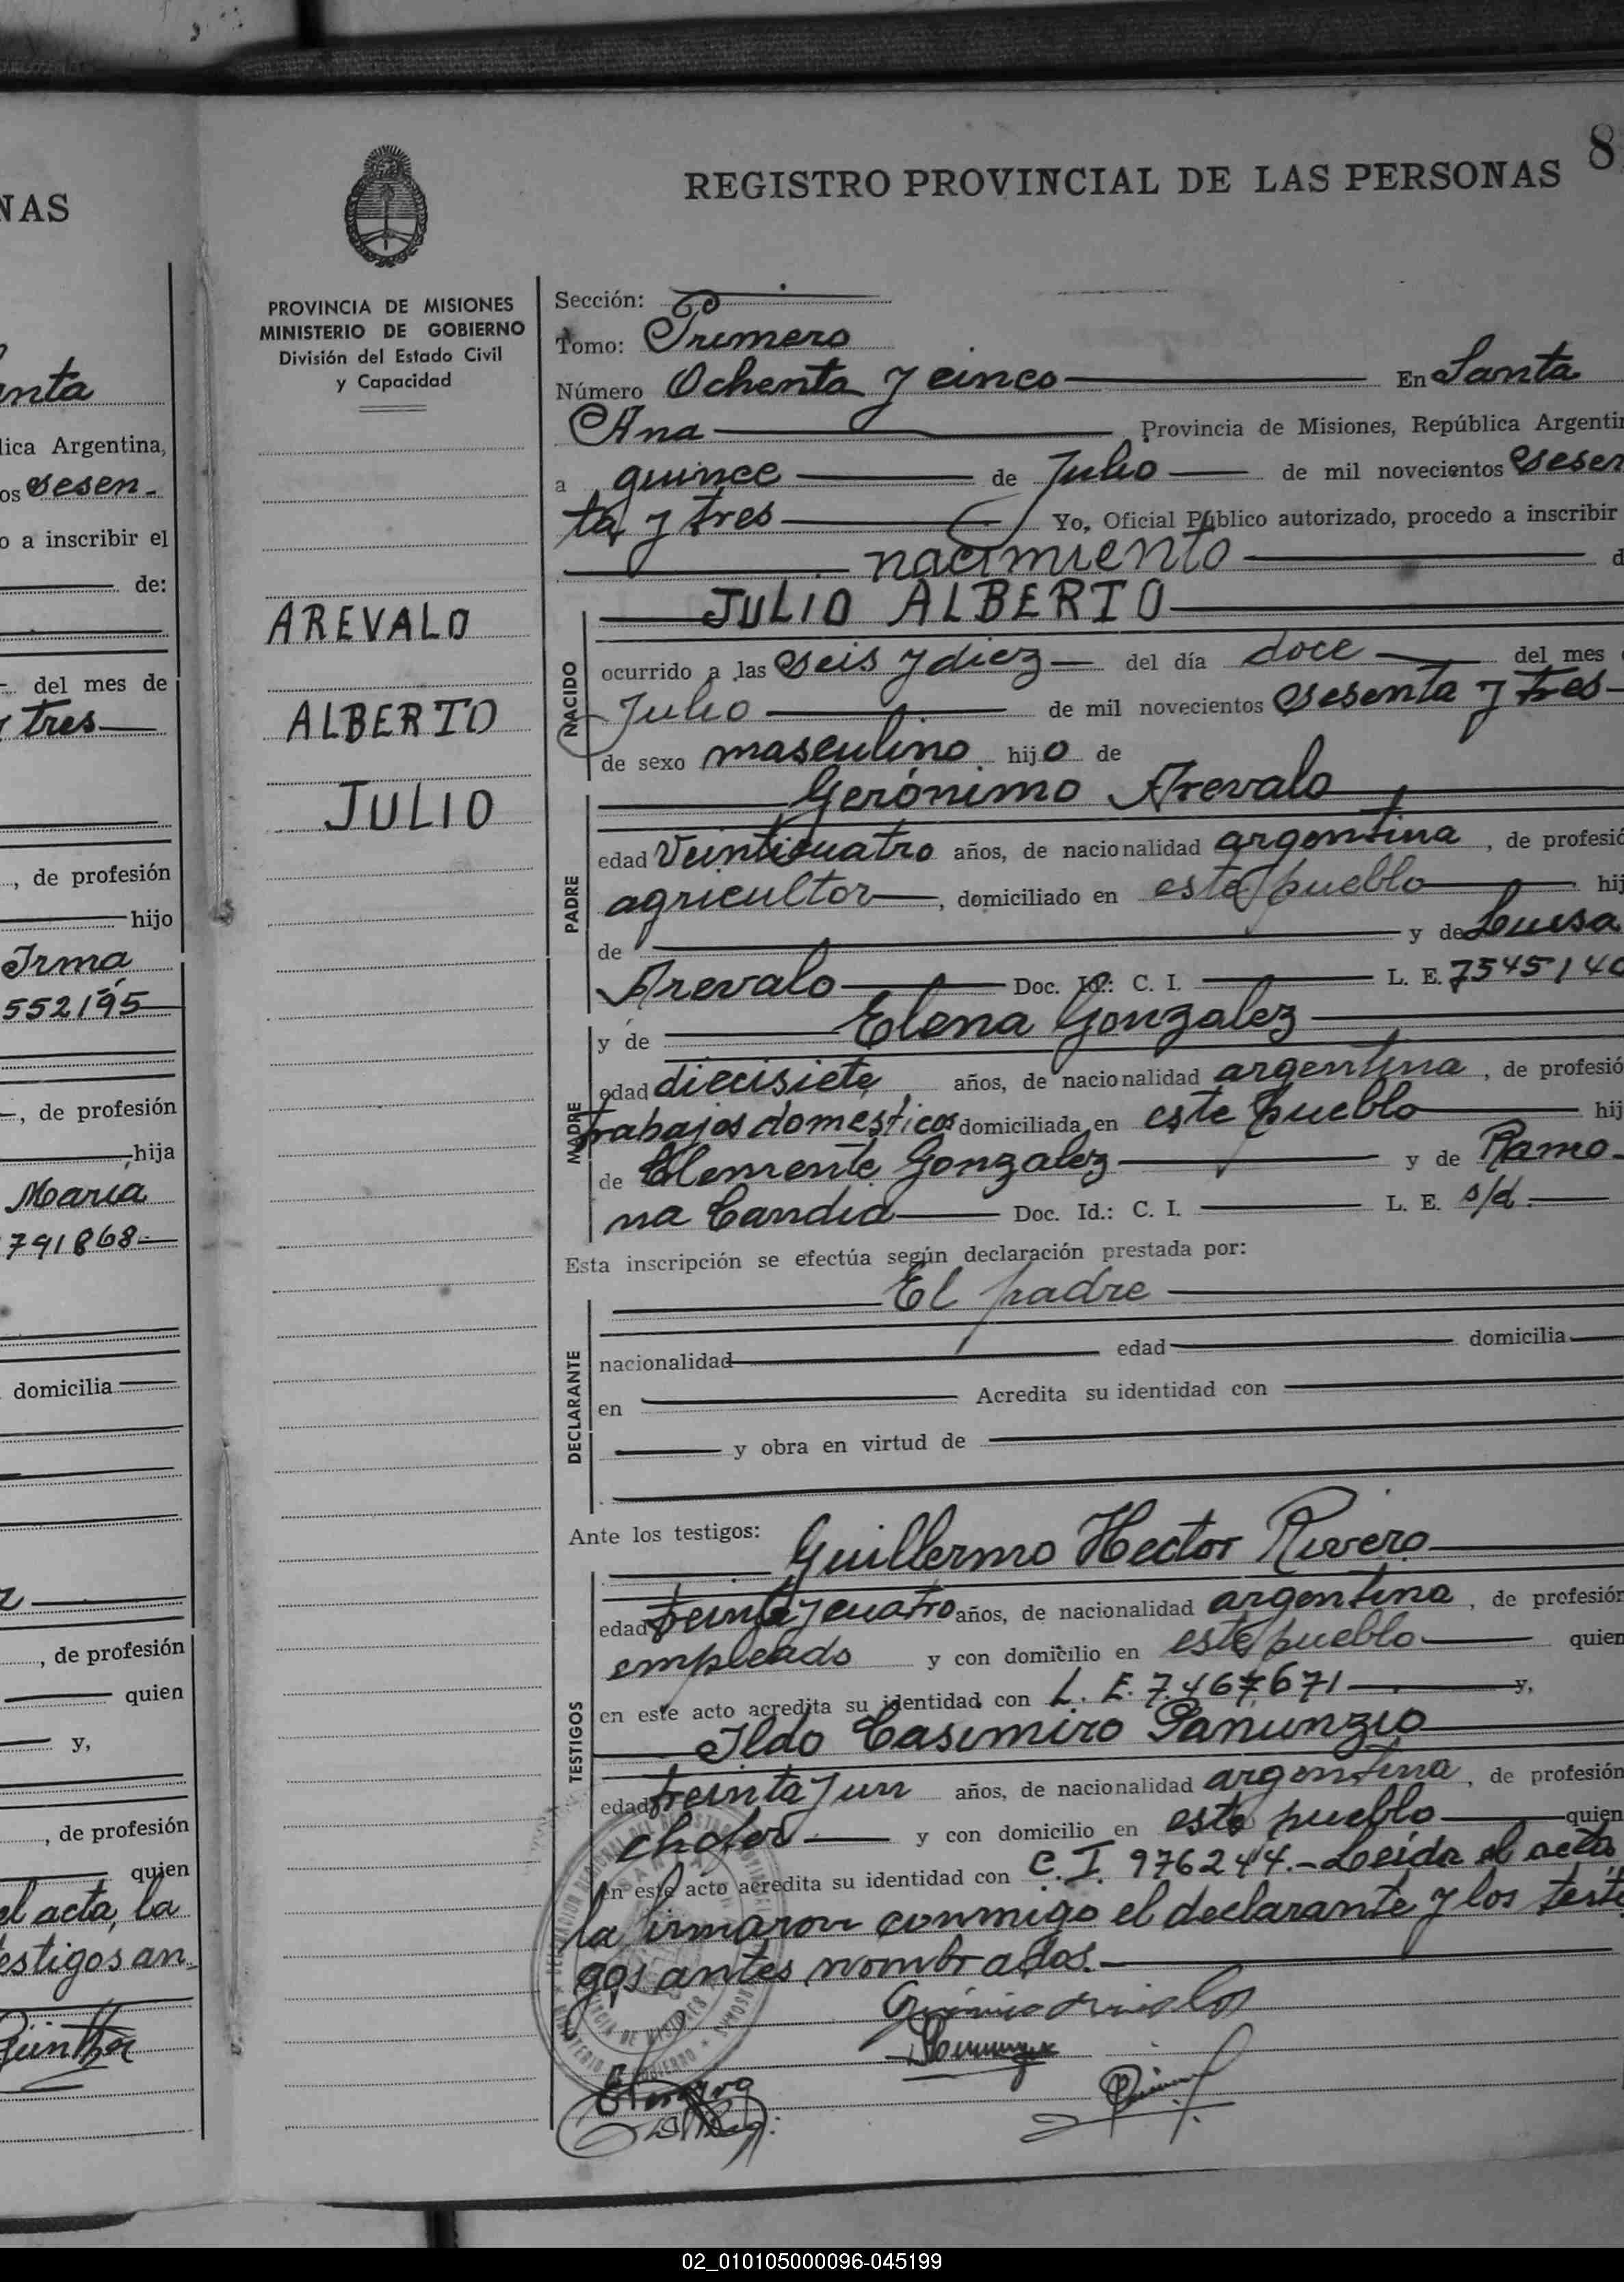 NAS
nta
lica Argentina,
os sesen-
o a inscribir el
de:
del mes de
y tres
, de profesión
hijo
Irma
552195
, de profesión
hija
Maria
791868
domicilia
, de profesión
quien
y,
, de profesión
quien
el acta, la
estigos an-
Günther
REGISTRO PROVINCIAL DE LAS PERSONAS 8
PROVINCIA DE MISIONES
MINISTERIO DE GOBIERNO
División del Estado Civil
y Capacidad
AREVALO
ALBERTO
JULIO
Sección:
Tomo: Primero
Número Ochenta y cinco En Santa
Ana Provincia de Misiones, República Argentin
a quince de Julio de mil novecientos sesen
ta y tres Yo, Oficial Público autorizado, procedo a inscribir
nacimiento d
JULIO ALBERTO
NACIDO
ocurrido a las seis y diez del día doce del mes
Julio de mil novecientos sesenta y tres
de sexo masculino hijo de
Gerónimo Arevalo
PADRE
edad Veinticuatro años, de nacionalidad argentina, de profesió
agricultor, domiciliado en este pueblo hij
de y de Luisa
Arevalo Doc. Id.: C. I. L. E. 7545140
y de Elena Gonzalez
MADRE
edad diecisiete años, de nacionalidad argentina, de profesió
trabajos domesticos domiciliada en este pueblo hij
de Clemente Gonzalez y de Ramo-
na Candia Doc. Id.: C. I. L. E. s/d.
Esta inscripción se efectúa según declaración prestada por:
El padre
DECLARANTE
nacionalidad edad domicilia
en Acredita su identidad con
y obra en virtud de
Ante los testigos:
Guillermo Hector Rivero
TESTIGOS
edad treinta y cuatro años, de nacionalidad argentina, de profesión
empleado y con domicilio en este pueblo quien
en este acto acredita su identidad con L. E. 7.467.671 y,
Ildo Casimiro Panunzio
edad treinta y un años, de nacionalidad argentina, de profesión
chofer y con domicilio en este pueblo quien
en este acto acredita su identidad con C. I. 976244.- Leída el acta
la firmaron conmigo el declarante y los testi
gos antes nombrados.
02_010105000096-045199